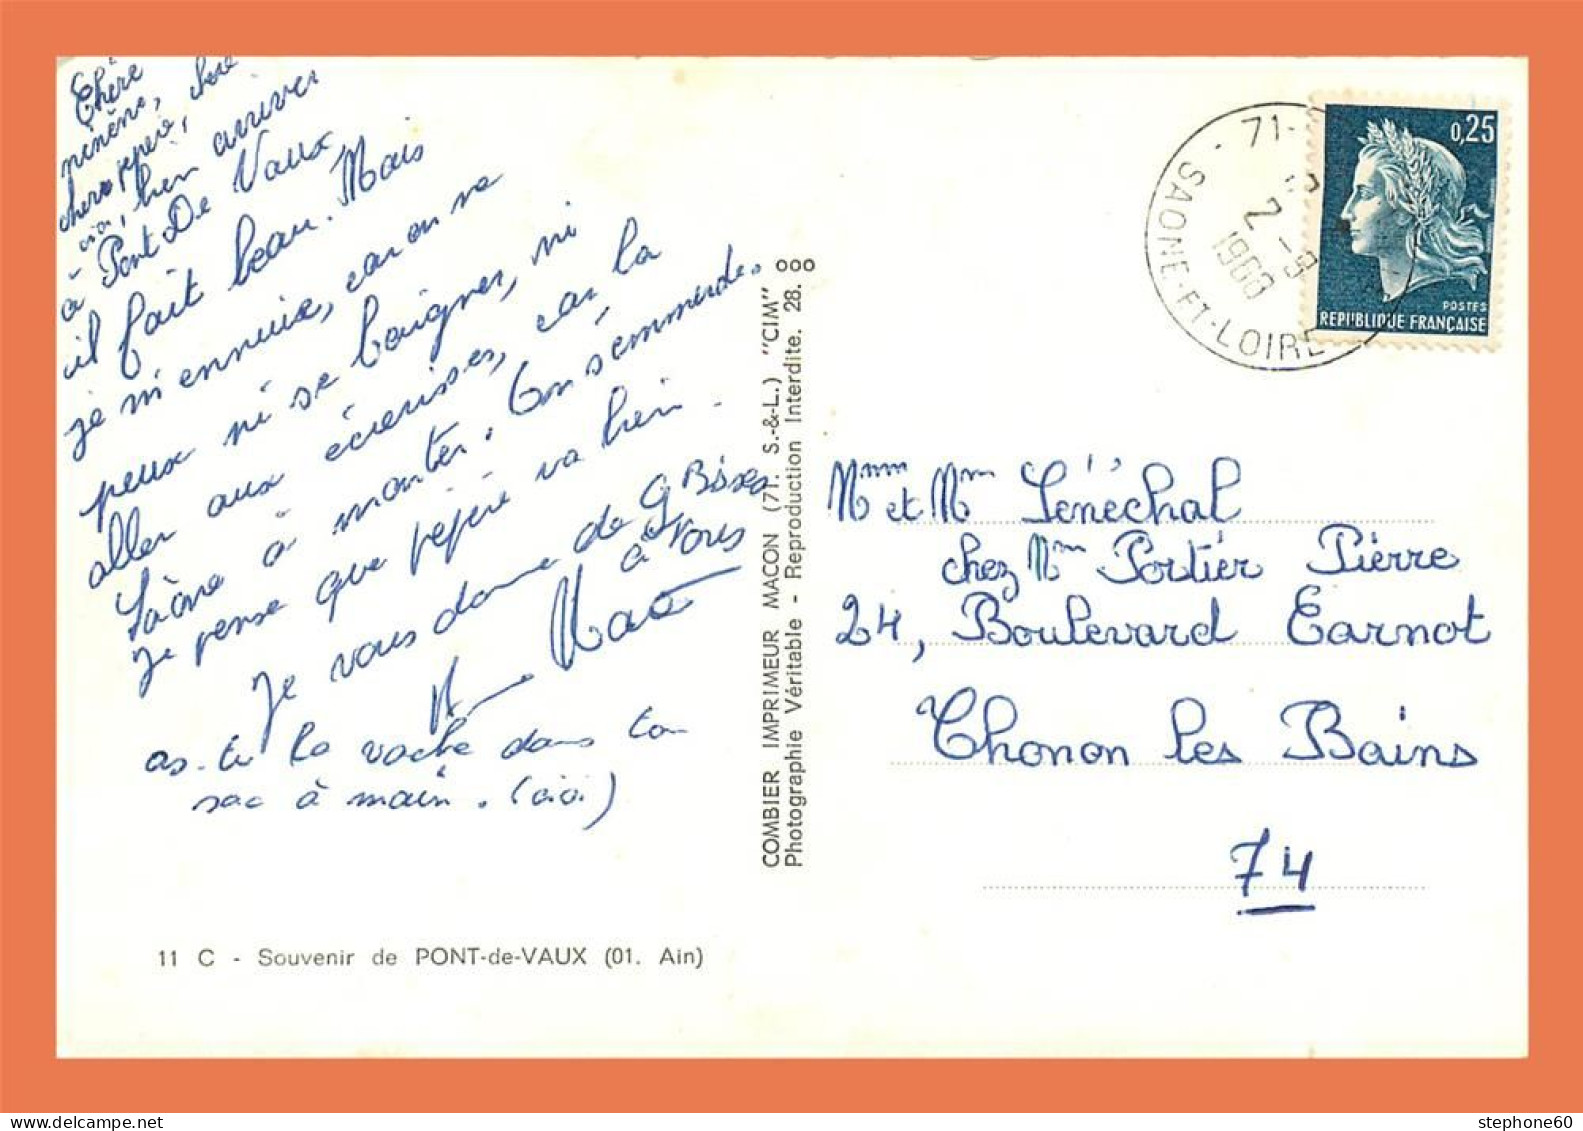 Chère
mémère, chère
chere pépère,
bien arriver
à Pont De Vaux
il fait beau. Mais
je m'ennuie, car on ne
peux ni se baigner, ni
aller aux écrevisses, car la
Saône à monter. Con s'emmerde.
Je pense que pépère va bien.
Je vous donne de G Bises
à vous
as-tu la vache dans ton
sac à main. (oioi)
11 C - Souvenir de PONT-de-VAUX (01. Ain)
COMBIER IMPRIMEUR MACON (71. S.-&-L.) "CIM"
Photographie Véritable - Reproduction Interdite. 28.
ooo
71-
SAONE-ET-LOIRE
2 -9
0,25
POSTES
REPUBLIQUE FRANÇAISE
Mme et Mr Sénéchal
chez Mr Portier Pierre
24, Boulevard Carnot
Thonon les Bains
74
stephone60